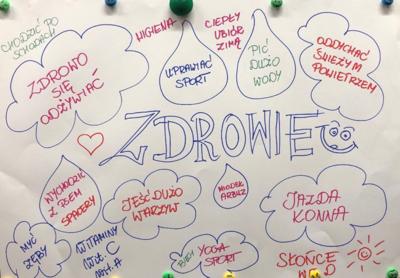 CHODZIĆ PO
SCHODACH
HIGIENA
CIEPŁY
UBIÓR
ZIMĄ
ZDROWO
SIĘ
ODŻYWIAĆ
UPRAWIAĆ
SPORT
PIĆ
DUŻO
WODY
ODDYCHAĆ
ŚWIEŻYM
POWIETRZEM
ZDROWIE
WYCHODZIĆ
Z PSEM
SPACERY
JEŚĆ DUŻO
WARZYW
MIODEK
ARBUZ
JAZDA
KONNA
MYĆ
ZĘBY
WITAMINY
Wit. C
Wit. A
BIEG
YOGA
SPORT
SŁOŃCE